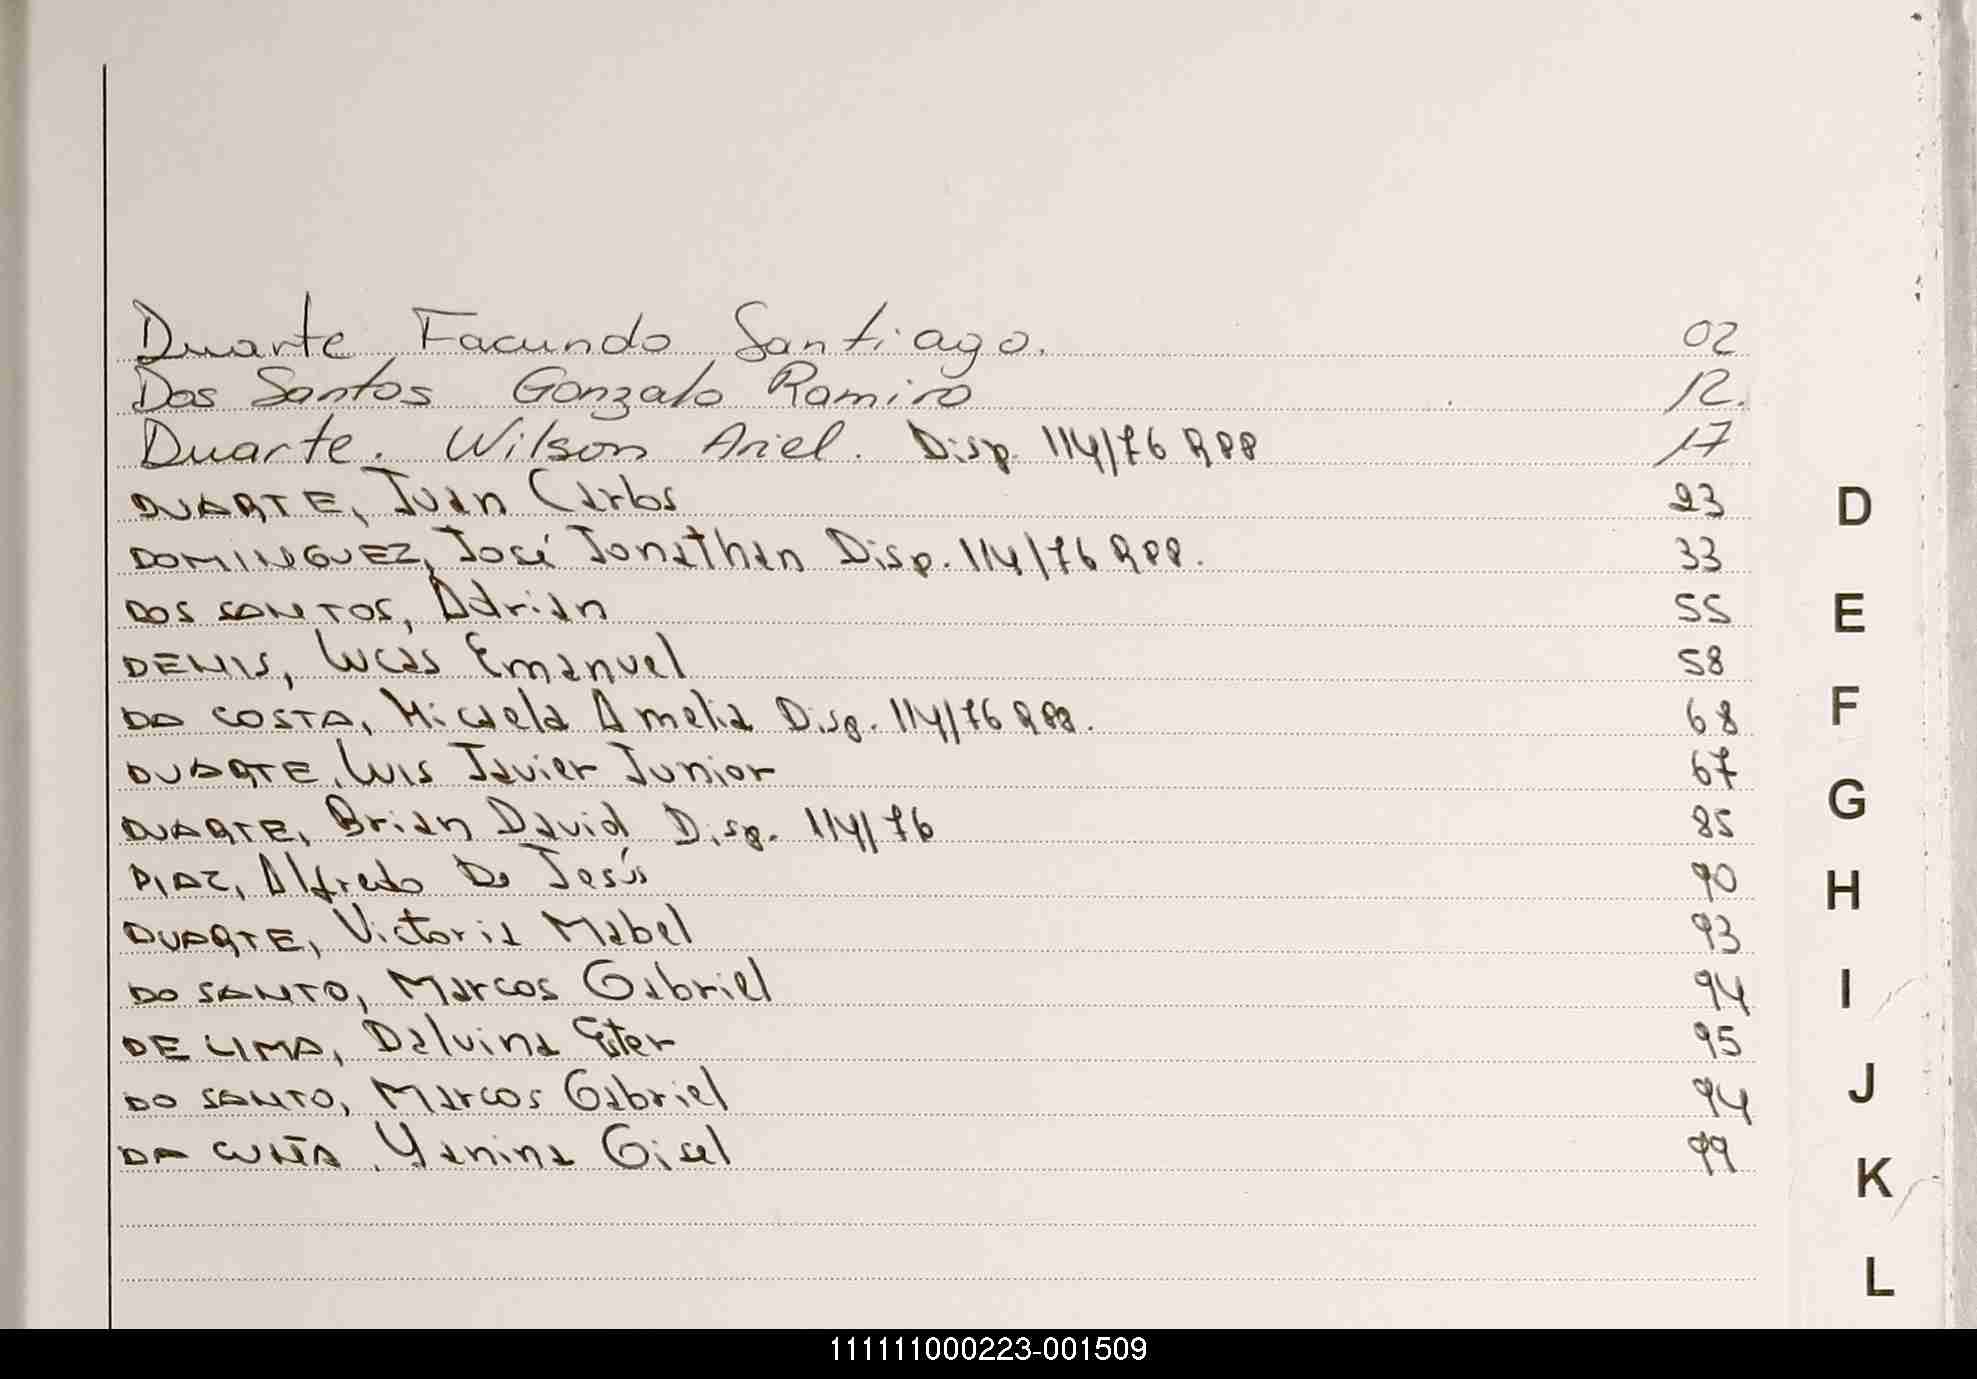 Duarte Facundo Santiago. 02
Dos Santos Gonzalo Ramiro 12.
Duarte. Wilson Ariel. Disp. 114/76 RPP 17
DUARTE, Juan Carlos 23
DOMINGUEZ, José Jonathan Disp. 114/76 RPP. 33
DOS SANTOS, Adrian 55
DENIS, Lucas Emanuel 58
DA COSTA, Micaela Amelia Disp. 114/76 RPP. 68
DUARTE, Luis Javier Junior 67
DUARTE, Brian David Disp. 114/76 85
DIAZ, Alfredo De Jesús 90
DUARTE, Victoria Mabel 93
DO SANTO, Marcos Gabriel 94
DE LIMA, Dalvina Ester 95
DO SANTO, Marcos Gabriel 94
DA CUÑA, Yanina Gisel 99
D
E
F
G
H
I
J
K
L
111111000223-001509